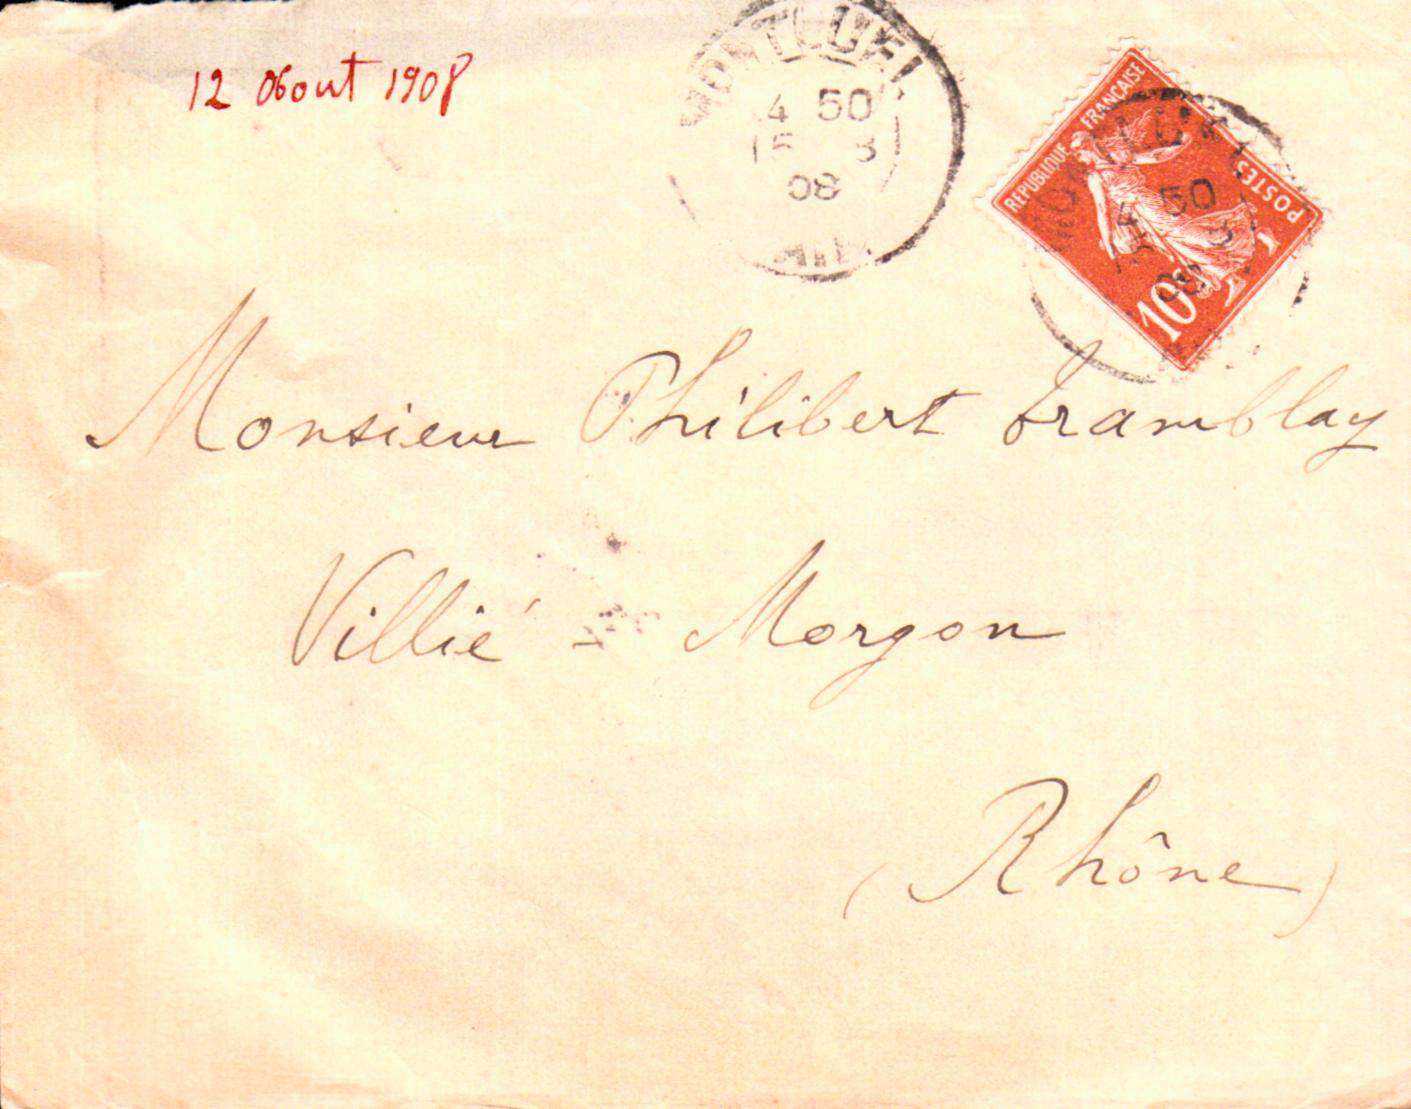 12 Aout 1908
MONTLUEL
4 50
15 8
08
AIN
REPUBLIQUE FRANÇAISE
POSTES
10
50
8
08
Monsieur Philibert Tramblay
Villié - Morgon
(Rhône)